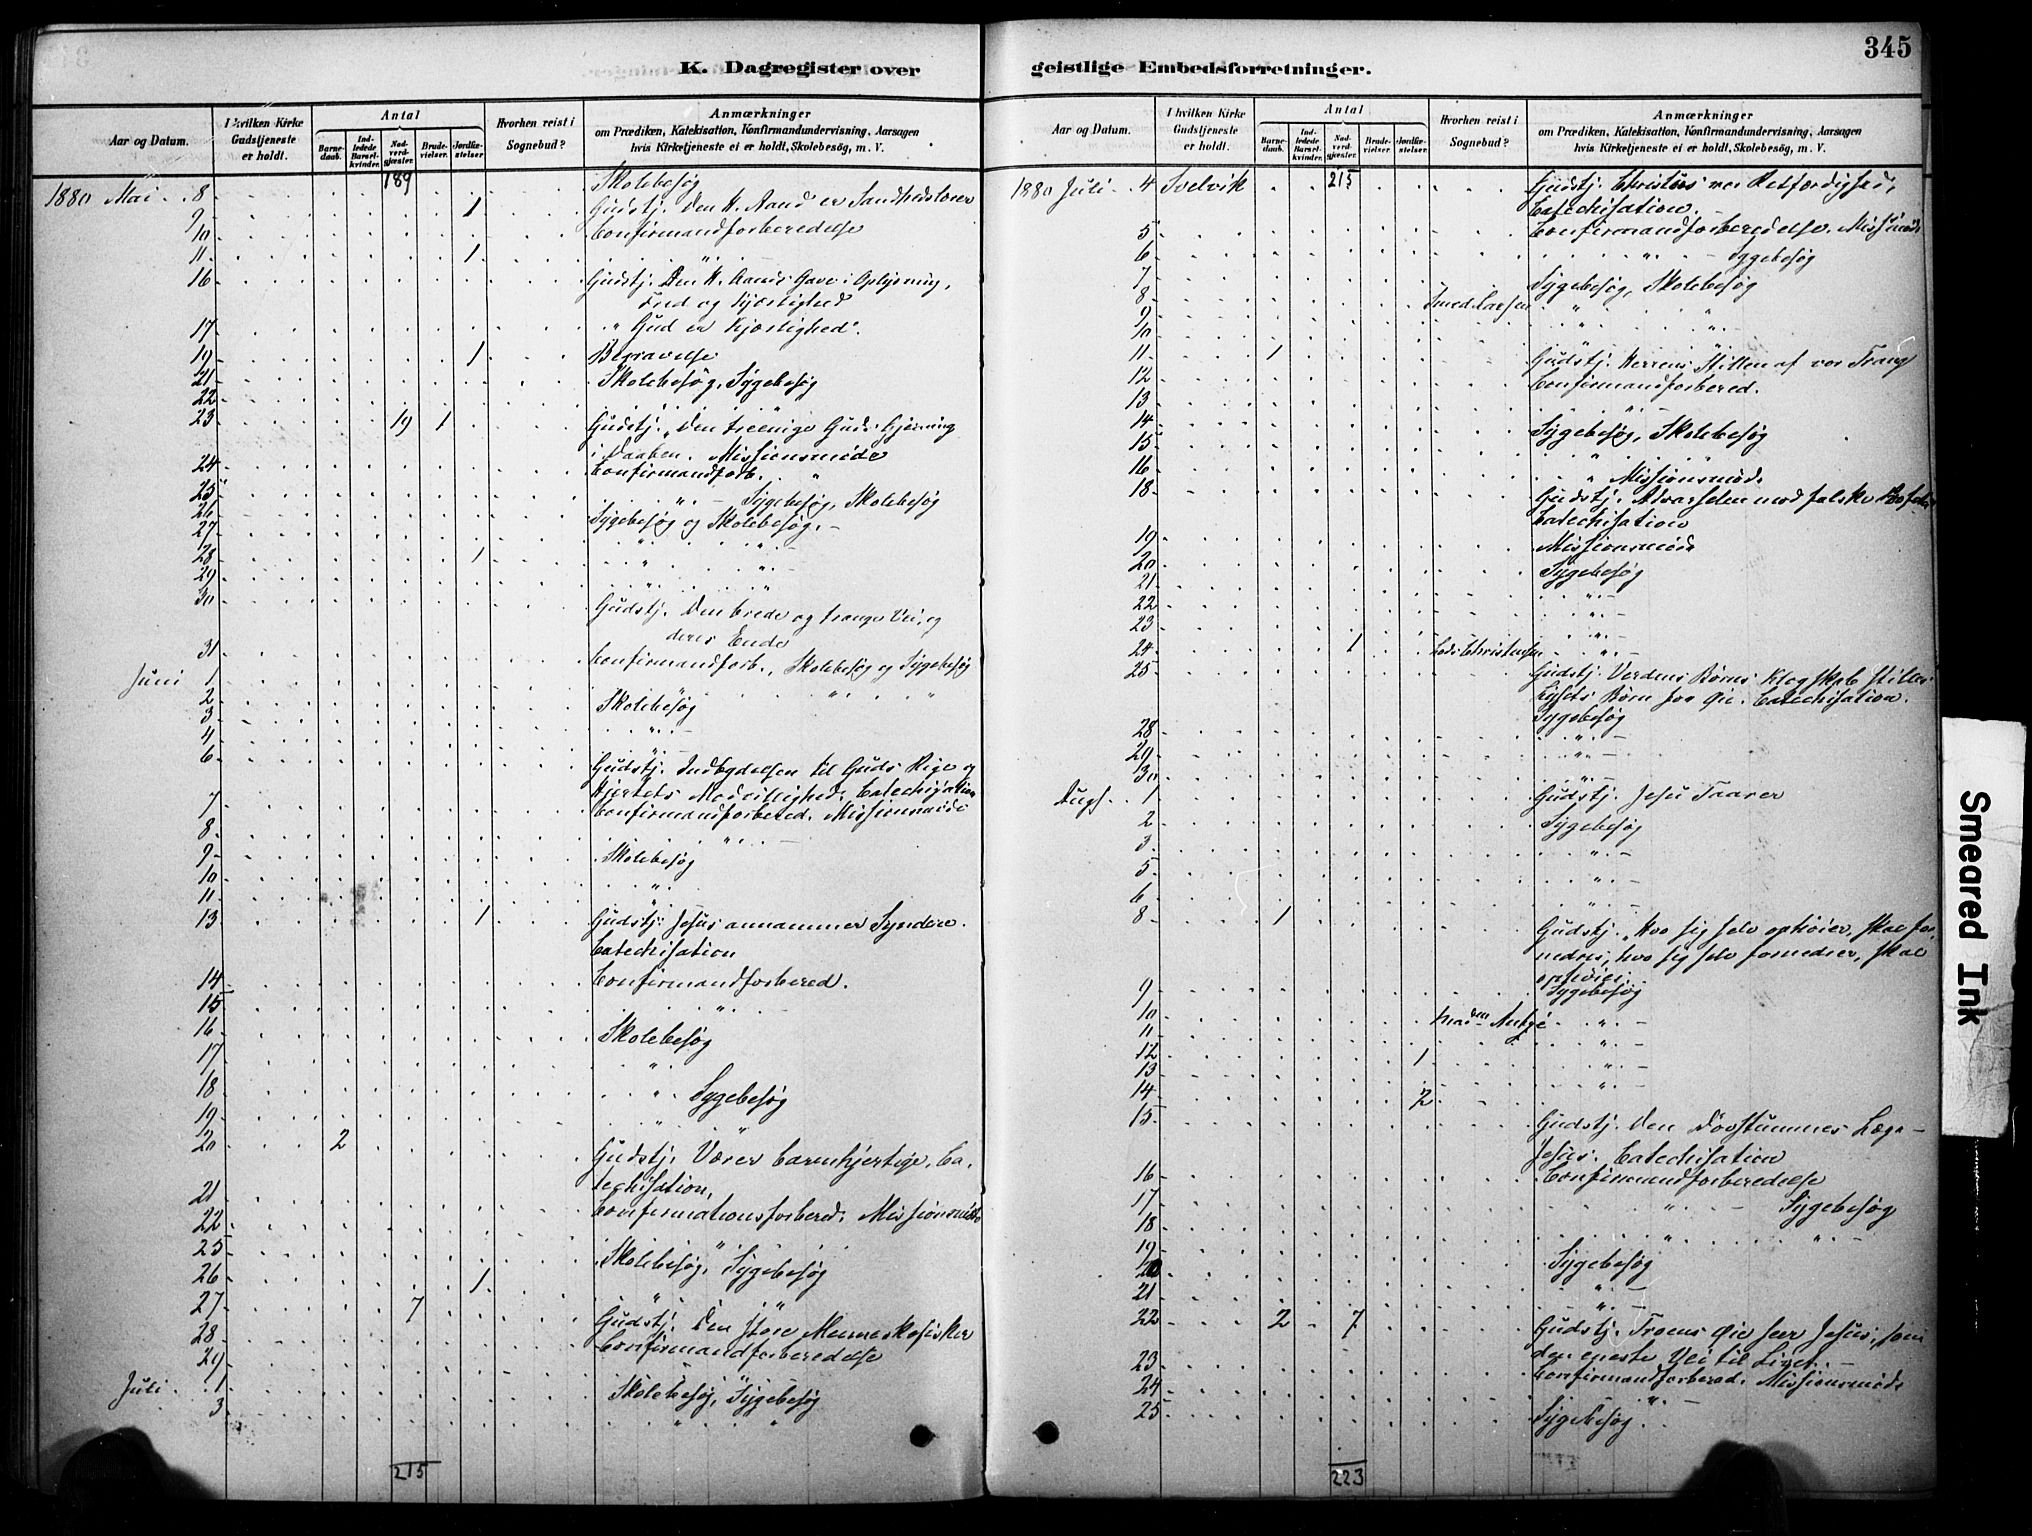 345
K. Dagregister over
geistlige Embedsforretninger.
Aar og Datum.
I hvilken Kirke Gudstjeneste er holdt.
Antal
Barne-daab.
Ind-ledede Barsel-kvinder.
Nad-verd-gjæster.
Brude-vielser.
Jordfæ-stelser
Hvorhen reist i Sognebud?
Anmærkninger
om Prædiken, Katekisation, Konfirmandundervisning, Aarsagen
hvis Kirketjeneste ei er holdt, Skolebesög, m. V.
189
1880 Mai 8 Skolebesøg
9 1 Gudstj. Den H. Aand er Sandheds lærer
10 Confirmandforberedelse
11 1 "
16 Gudstj. Den H. Aands Gave: Oplysning,
Fred og Kjærlighed
17 " Gud er Kjærlighed".
19 1 Begravelse
21 Skolebesøg, Sygebesøg
22
23 19 1 Gudstj. Den treenige Guds Gjerning
i Daaben. Missionsmøde
24 Confirmandforb.
25 " Sygebesøg, Skolebesøg
26 Sygebesøg og Skolebesøg
27 " "
28 1 " "
29 " "
30 Gudstj. Den brede og trange Vei, og
deres Ende
31 Confirmandforb., Skolebesøg og Sygebesøg
Juni 1 " " "
2 Skolebesøg
3 "
4 "
6 Gudstj. Indbydelsen til Guds Rige og
Hjertets Modvillighed. Catechisation
7 Confirmandforbered. Missionsmøde
8 "
9 Skolebesøg
10 "
11
13 1 Gudstj. Jesus annammer Syndere.
Catechisation
14 Confirmandforbered.
15 "
16 Skolebesøg
17 "
18 " Sygebesøg
19 " "
20 2 Gudstj. Værer barmhjertige. Ca-
techisation.
21 Confirmationsforbered. Missionsmøde
22 "
25 Skolebesøg, Sygebesøg
26 1 " "
27 7 Gudstj. Den store Menneskefisker
28 Confirmandforberedelse
29 "
Juli 1 Skolebesøg, Sygebesøg
3 " "
215
Aar og Datum.
I hvilken Kirke Gudstjeneste er holdt.
Antal
Barne-daab.
Ind-ledede Barsel-kvinder.
Nad-verd-gjæster.
Brude-vielser.
Jordfæ-stelser.
Hvorhen reist i Sognebud?
Anmærkninger
om Prædiken, Katekisation, Konfirmandundervisning, Aarsagen
hvis Kirketjeneste ei er holdt, Skolebesög, m. V.
215
1880 Juli 4 Svelvik Gudstj. Christus vor Retfærdighed,
Catechisation.
5 Confirmandforberedelse. Missmøde
6 " Sygebesøg
7 Sygebesøg, Skolebesøg
8 Larsen " "
9 " "
10
11 1 Gudstj. Herrens Stillen af vor Trang
12 Confirmandforbered.
13 "
14 Sygebesøg, Skolebesøg
15
16 " Missionsmøde
18 Gudstj. Advarselen mod falske
Catechisation
19 Missionsmøde
20 Sygebesøg
21 "
22 "
23 "
24 1 Lods Christensen "
25 Gudstj. Verdens Børns Klogskab stilles
Lysets Børn for Øie. Catechisation.
28 Sygebesøg
29 "
30 "
Augs. 1 Gudstj. Jesu Taarer
2 Sygebesøg
3 "
5 "
6 "
8 1 Gudstj. "Hvo sig selv ophøier, skal for-
nedres; hvo sig selv fornedrer, skal
ophøies.
9 Sygebesøg
10 "
11 "
12 1 "
13 "
14 2
15 Gudstj. Den Døvstummes Læge –
Jesus. Catechisation
16 Confirmandforberedelse
17 " Sygebesøg
18 " "
19 Sygebesøg
20 "
21 "
22 2 7 Gudstj. Troens Øie seer Jesus, som
den eneste Vei til Livet. –
23 Confirmandforbered. Missionsmøde
24 "
25 Sygebesøg.
223
Smeared Ink